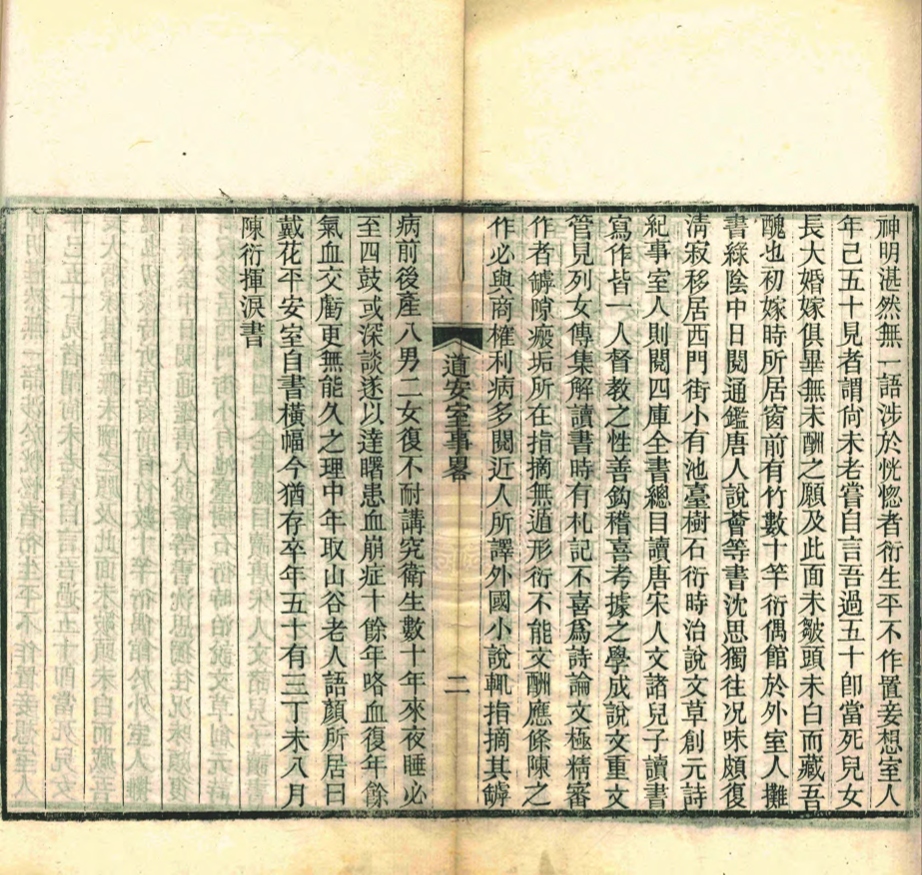 神明湛然無一語涉於恍惚者衍生平不作置妾想室人
年已五十見者謂尙未老嘗自言吾過五十卽當死兒女
長大婚嫁俱畢無未酬之願及此面未皺頭未白而藏吾
醜也初嫁時所居窗前有竹數十竿衍偶館於外室人攤
書綠陰中日閱通鑑唐人說薈等書沈思獨往况味頗復
淸寂移居西門街小有池臺樹石衍時治說文草創元詩
紀事室人則閱四庫全書總目讀唐宋人文諸兒子讀書
寫作皆一人督教之性善鈎稽喜考據之學成說文重文
管見列女傳集解讀書時有札記不喜爲詩論文極精審
作者罅隙瘢垢所在指摘無遁形衍不能文酬應條陳之
作必與商榷利病多閱近人所譯外國小說輒指摘其罅
道安室事畧
二
病前後產八男二女復不耐講究衛生數十年來夜睡必
至四鼓或深談遂以達曙患血崩症十餘年咯血復年餘
氣血交虧更無能久之理中年取山谷老人語顏所居曰
戴花平安室自書橫幅今猶存卒年五十有三丁未八月
陳衍揮淚書